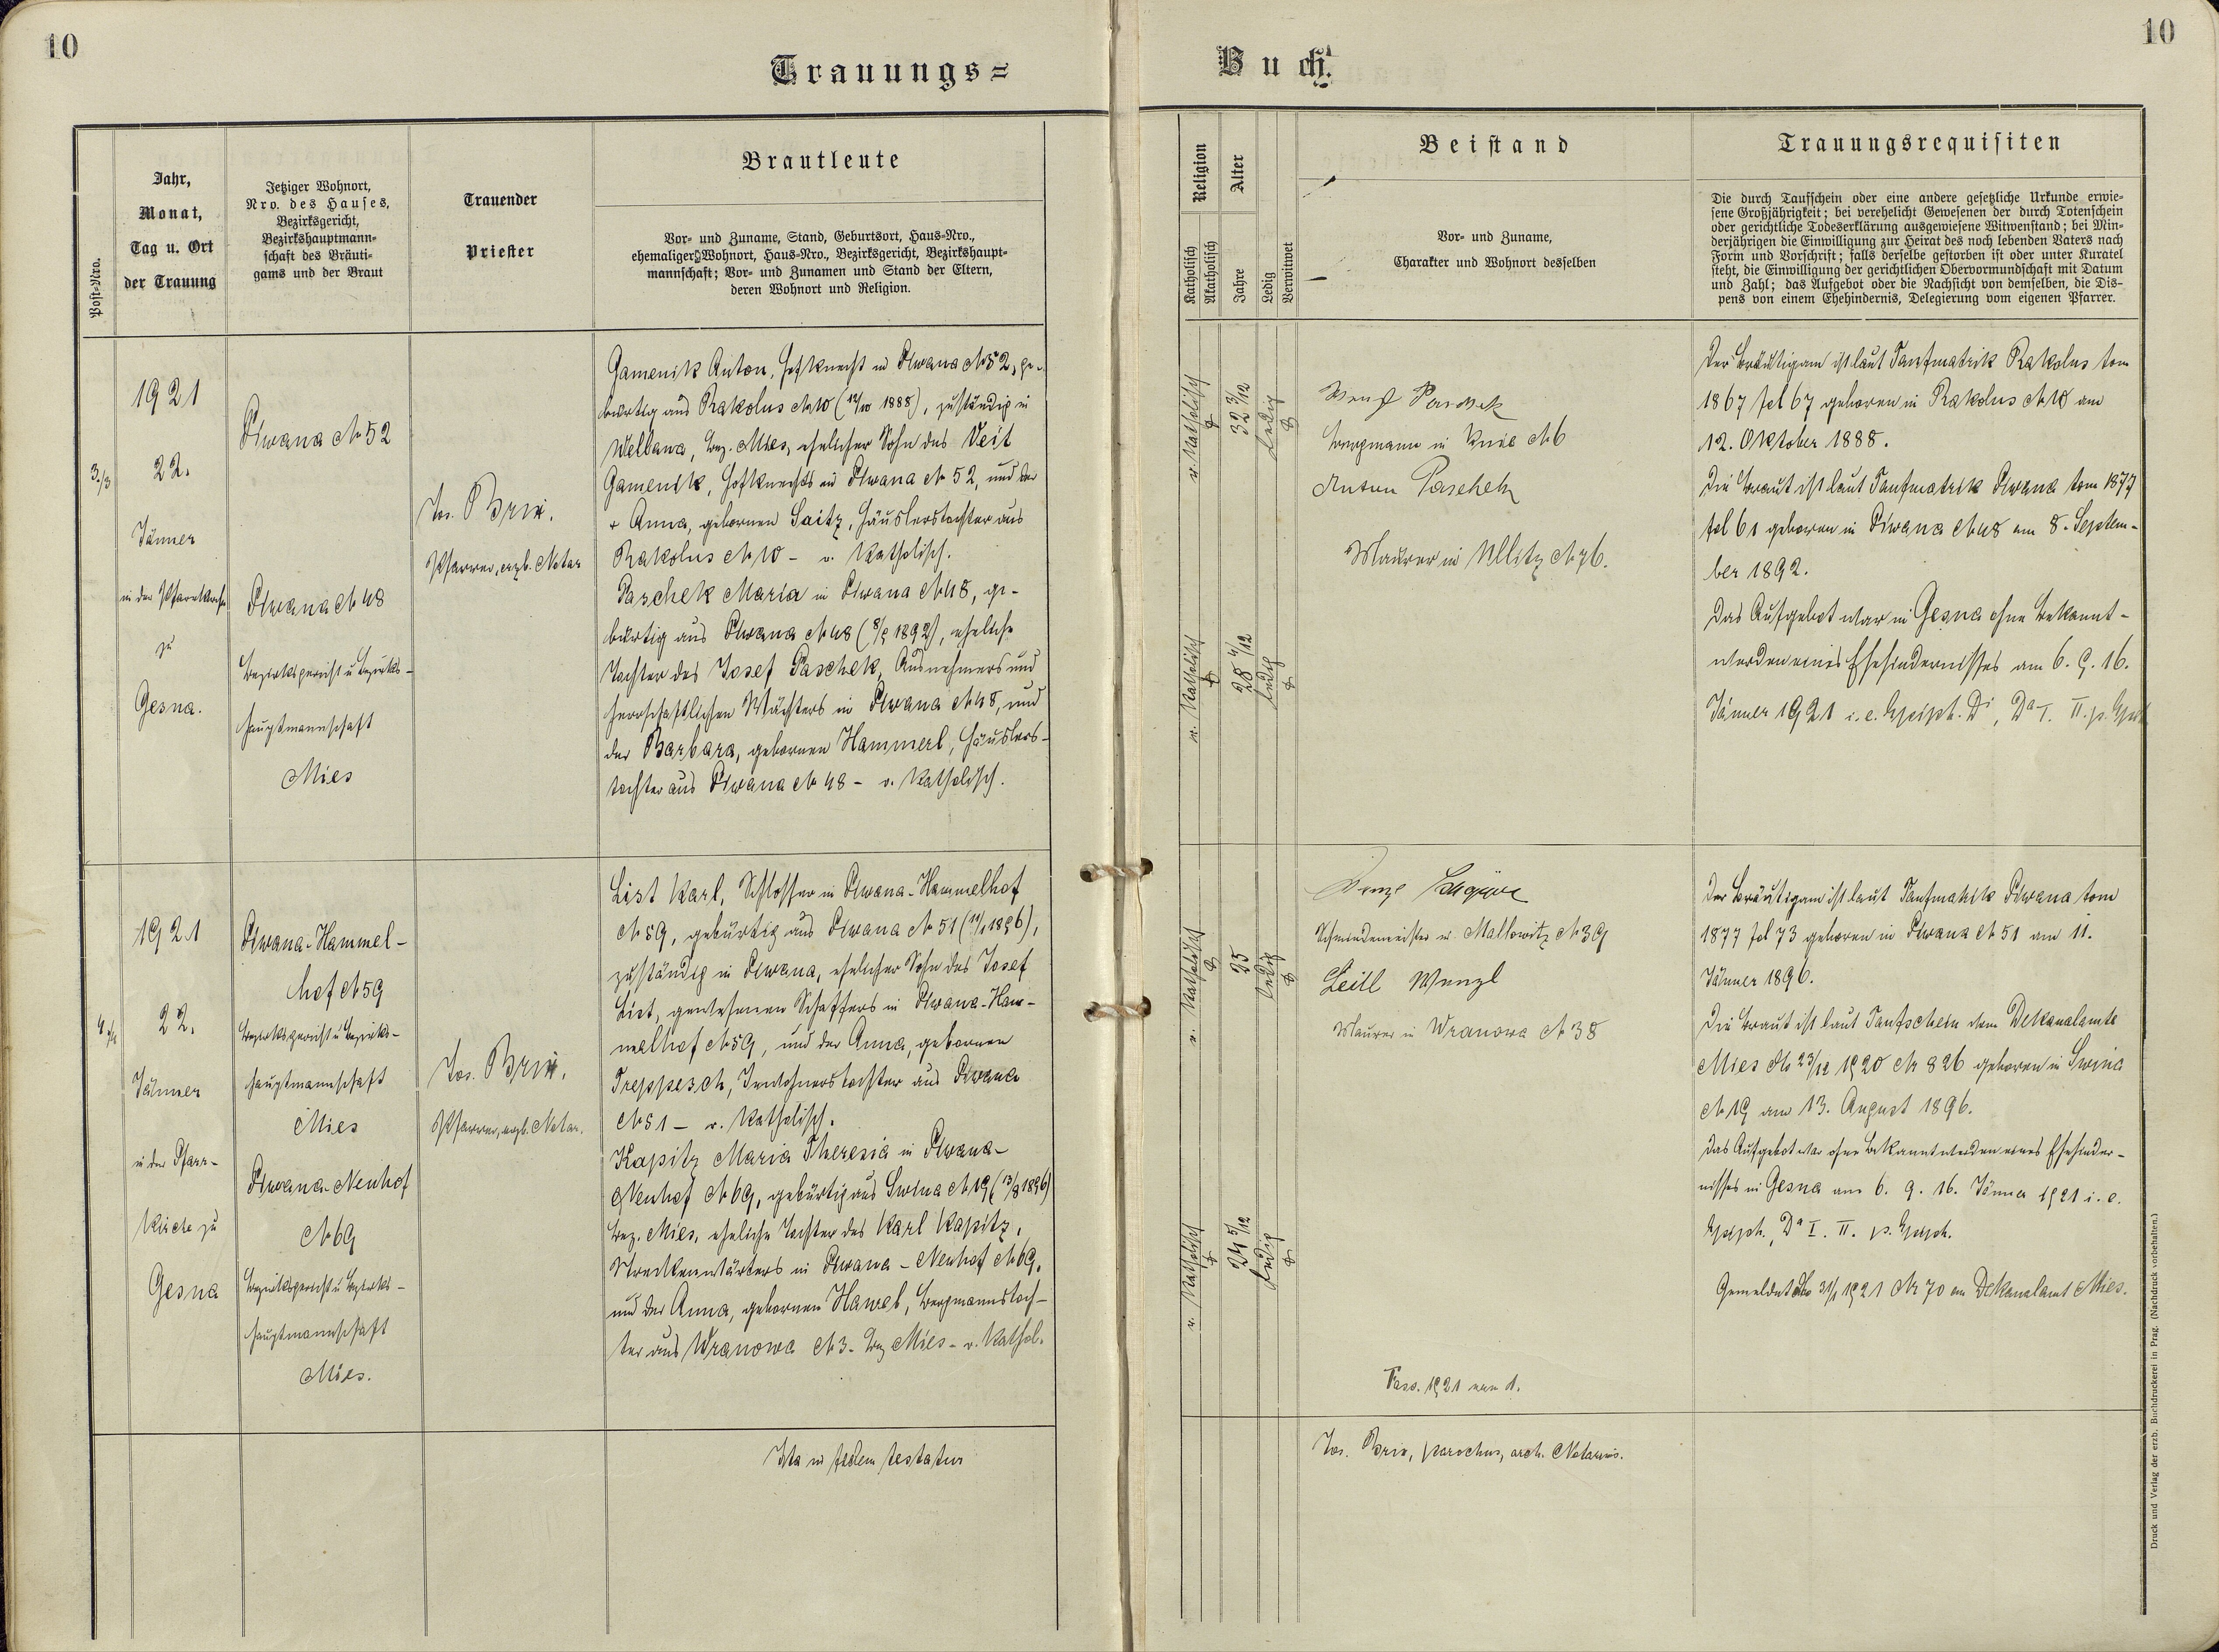 10
Trauungs=
Post=Nro.
Jahr,
Monat,
Tag u. Ort
der Trauung
Jetziger Wohnort,
Nro. des Hauses,
Bezirksgericht,
Bezirkshauptmann=
schaft des Bräuti=
gams und der Braut
Trauender
Priester
Brautleute
Vor= und Zuname, Stand, Geburtsort, Haus=Nro.,
ehemaliger Wohnort, Haus=Nro., Bezirksgericht, Bezirkshaupt=
mannschaft; Vor= und Zunamen und Stand der Eltern,
deren Wohnort und Religion.
3./3
1921
22.
Jänner
in der Pfarrkirche
zu
Gesna.
Plwana № 52
Plwana № 48
Bezirksgericht u Bezirks-
hauptmannschaft
Mies
Jos. Brix.
Pfarrer, erzb. Notar
Gamenik Anton, Hofknecht in Elwana № 52, ge-
bürtig aus Rakolus № 10 (12/10 1888), zuständig in
Wellana, Bez. Mies, ehelicher Sohn des Veit
Gamenik, Hofknechts in Elwana № 52, und der
+ Anna, gebornen Saitz, Häuslerstochter aus
Rakolus № 10 - r. Katholisch.
Paschek Maria in Elwana № 48, ge-
bürtig aus Elwana № 48 (8/9 1892), eheliche
Tochter des Josef Paschek, Ausnehmers und
herrschaftlichen Wächters in Elwana № 48, und
der Barbara, gebornen Hammerl, Häuslers-
tochter aus Elwana № 48 - r. Katholisch.
1921
22.
Jänner
in der Pfarr-
kirche zu
Gesna
Elwana-Hammel-
hof № 59
Bezirksgericht u Bezirks-
hauptmannschaft
Mies
Elwana-Neuhof
№ 69
Bezirksgericht u Bezirks-
hauptmannschaft
Mies.
Jos. Brix.
Pfarrer, erzb. Notar.
List Karl, Schlosser in Elwana-Hammelhof
№ 59, gebürtig aus Elwana № 51 (11/1 1896),
zuständig in Elwana, ehelicher Sohn des Josef
List, gewesenen Schaffers in Elwana-Ham-
melhof № 59, und der Anna, gebornen
Treppesch, Inwohnerstochter aus Elwana
№ 51 - r. Katholisch.
Kapitz Maria Theresia in Elwana-
Neuhof № 69, gebürtig aus Swina № 19 (13/8 1896)
Bez. Mies, eheliche Tochter des Karl Kapitz,
Streckenwärters in Elwana - Neuhof № 69,
und der Anna, gebornen Hawel, Bergmannstoch-
ter aus Wranowa № 3 - Bez Mies - r. Kathol.
Ita in fidem testatur
10
Buch.
Religion
Katholisch
Akatholisch
Alter
Jahre
Ledig
Verwitwet
Beistand
Vor= und Zuname,
Charakter und Wohnort desselben
Trauungsrequisiten
Die durch Taufschein oder eine andere gesetzliche Urkunde erwie=
sene Großjährigkeit; bei verehelicht Gewesenen der durch Totenschein
oder gerichtliche Todeserklärung ausgewiesene Witwenstand; bei Min=
derjährigen die Einwilligung zur Heirat des noch lebenden Vaters nach
Form und Vorschrift; falls derselbe gestorben ist oder unter Kuratel
steht, die Einwilligung der gerichtlichen Obervormundschaft mit Datum
und Zahl; das Aufgebot oder die Nachsicht von demselben, die Dis=
pens von einem Ehehindernis, Delegierung vom eigenen Pfarrer.
r. Katholisch
32 3/12
ledig
r. Katholisch
28 4/12
ledig
Wenzl Paschek
Bergmann in Knie № 6
Anton Paschek
Maurer in Ullitz № 76.
Der Bräutigam ist laut Taufmatrik Rakolus tom
1867 fol 67 geboren in Rakolus № 10 am
12. Oktober 1888.
Die Braut ist laut Taufmatrik Elwana tom 1877
fol 61 geboren in Elwana № 48 am 8. Septem-
ber 1892.
Das Aufgebot war in Gesna ohne Bekannt-
werden eines Ehehindernisses am 6. 9. 16.
Jänner 1921 i. e. Epiph. Di, Da I. II. p. Epiph
r. Katholisch
25
ledig
r. Katholisch
24 5/12
ledig
Wenzl
Schmiedemeister in Mallowitz № 39
Leitl Wenzl
Maurer in Wranowa № 38
Der Bräutigam ist laut Taufmatrik Elwana tom
1877 fol 73 geboren in Elwana № 51 am 11.
Jänner 1896.
Die Braut ist laut Taufschein vom Dekanalamte
Mies dto 23/12 1920 № 826 geboren in Swina
№ 19 am 13. August 1896.
Das Aufgebot war ohne Bekanntwerden eines Ehehinder-
nisses in Gesna am 6. 9. 16. Jänner 1921 i. e.
Epiph., Da I. II. p. Epiph.
Gemeldet dto 31/1 1921 № 70 an Dekanalamt Mies.
Fass. 1921 num 1.
Jos. Brix, parochus, arch. Notarius.
Druck und Verlag der erzb. Buchdruckerei in Prag. (Nachdruck vorbehalten.)